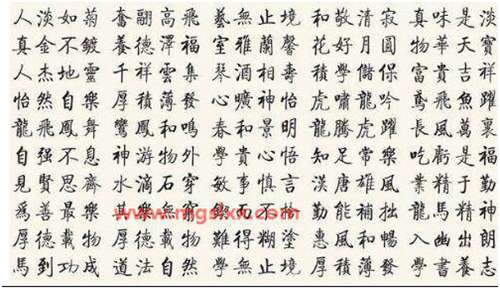 人淡如菊 奮翮高飛 藝無止境 和敬清寂 真味是淡
真金不鍍 養德澤福 室雅蘭馨 花好月圓 物華天寶
人杰地靈 千祥雲集 琴酒相壽 積學儲保 富貴吉祥
怡然自樂 厚積薄發 心曠神怡 虎嘯龍吟 鳶飛魚躍
龍飛鳳舞 鸞鳳和鳴 春和景明 龍騰虎躍 長風萬裏
自强不息 神游物外 學貴心悟 知足常樂 吃虧是福
見賢思齊 水滴石穿 敏事慎言 漢唐雄風 業精于勤
爲善最樂 勤能補拙 龍馬精神
厚德載物 厚德載物 難得糊塗 惠風和暢 入幽出朗
馬到功成 道法自然 學無止境 厚積薄發 學書養志